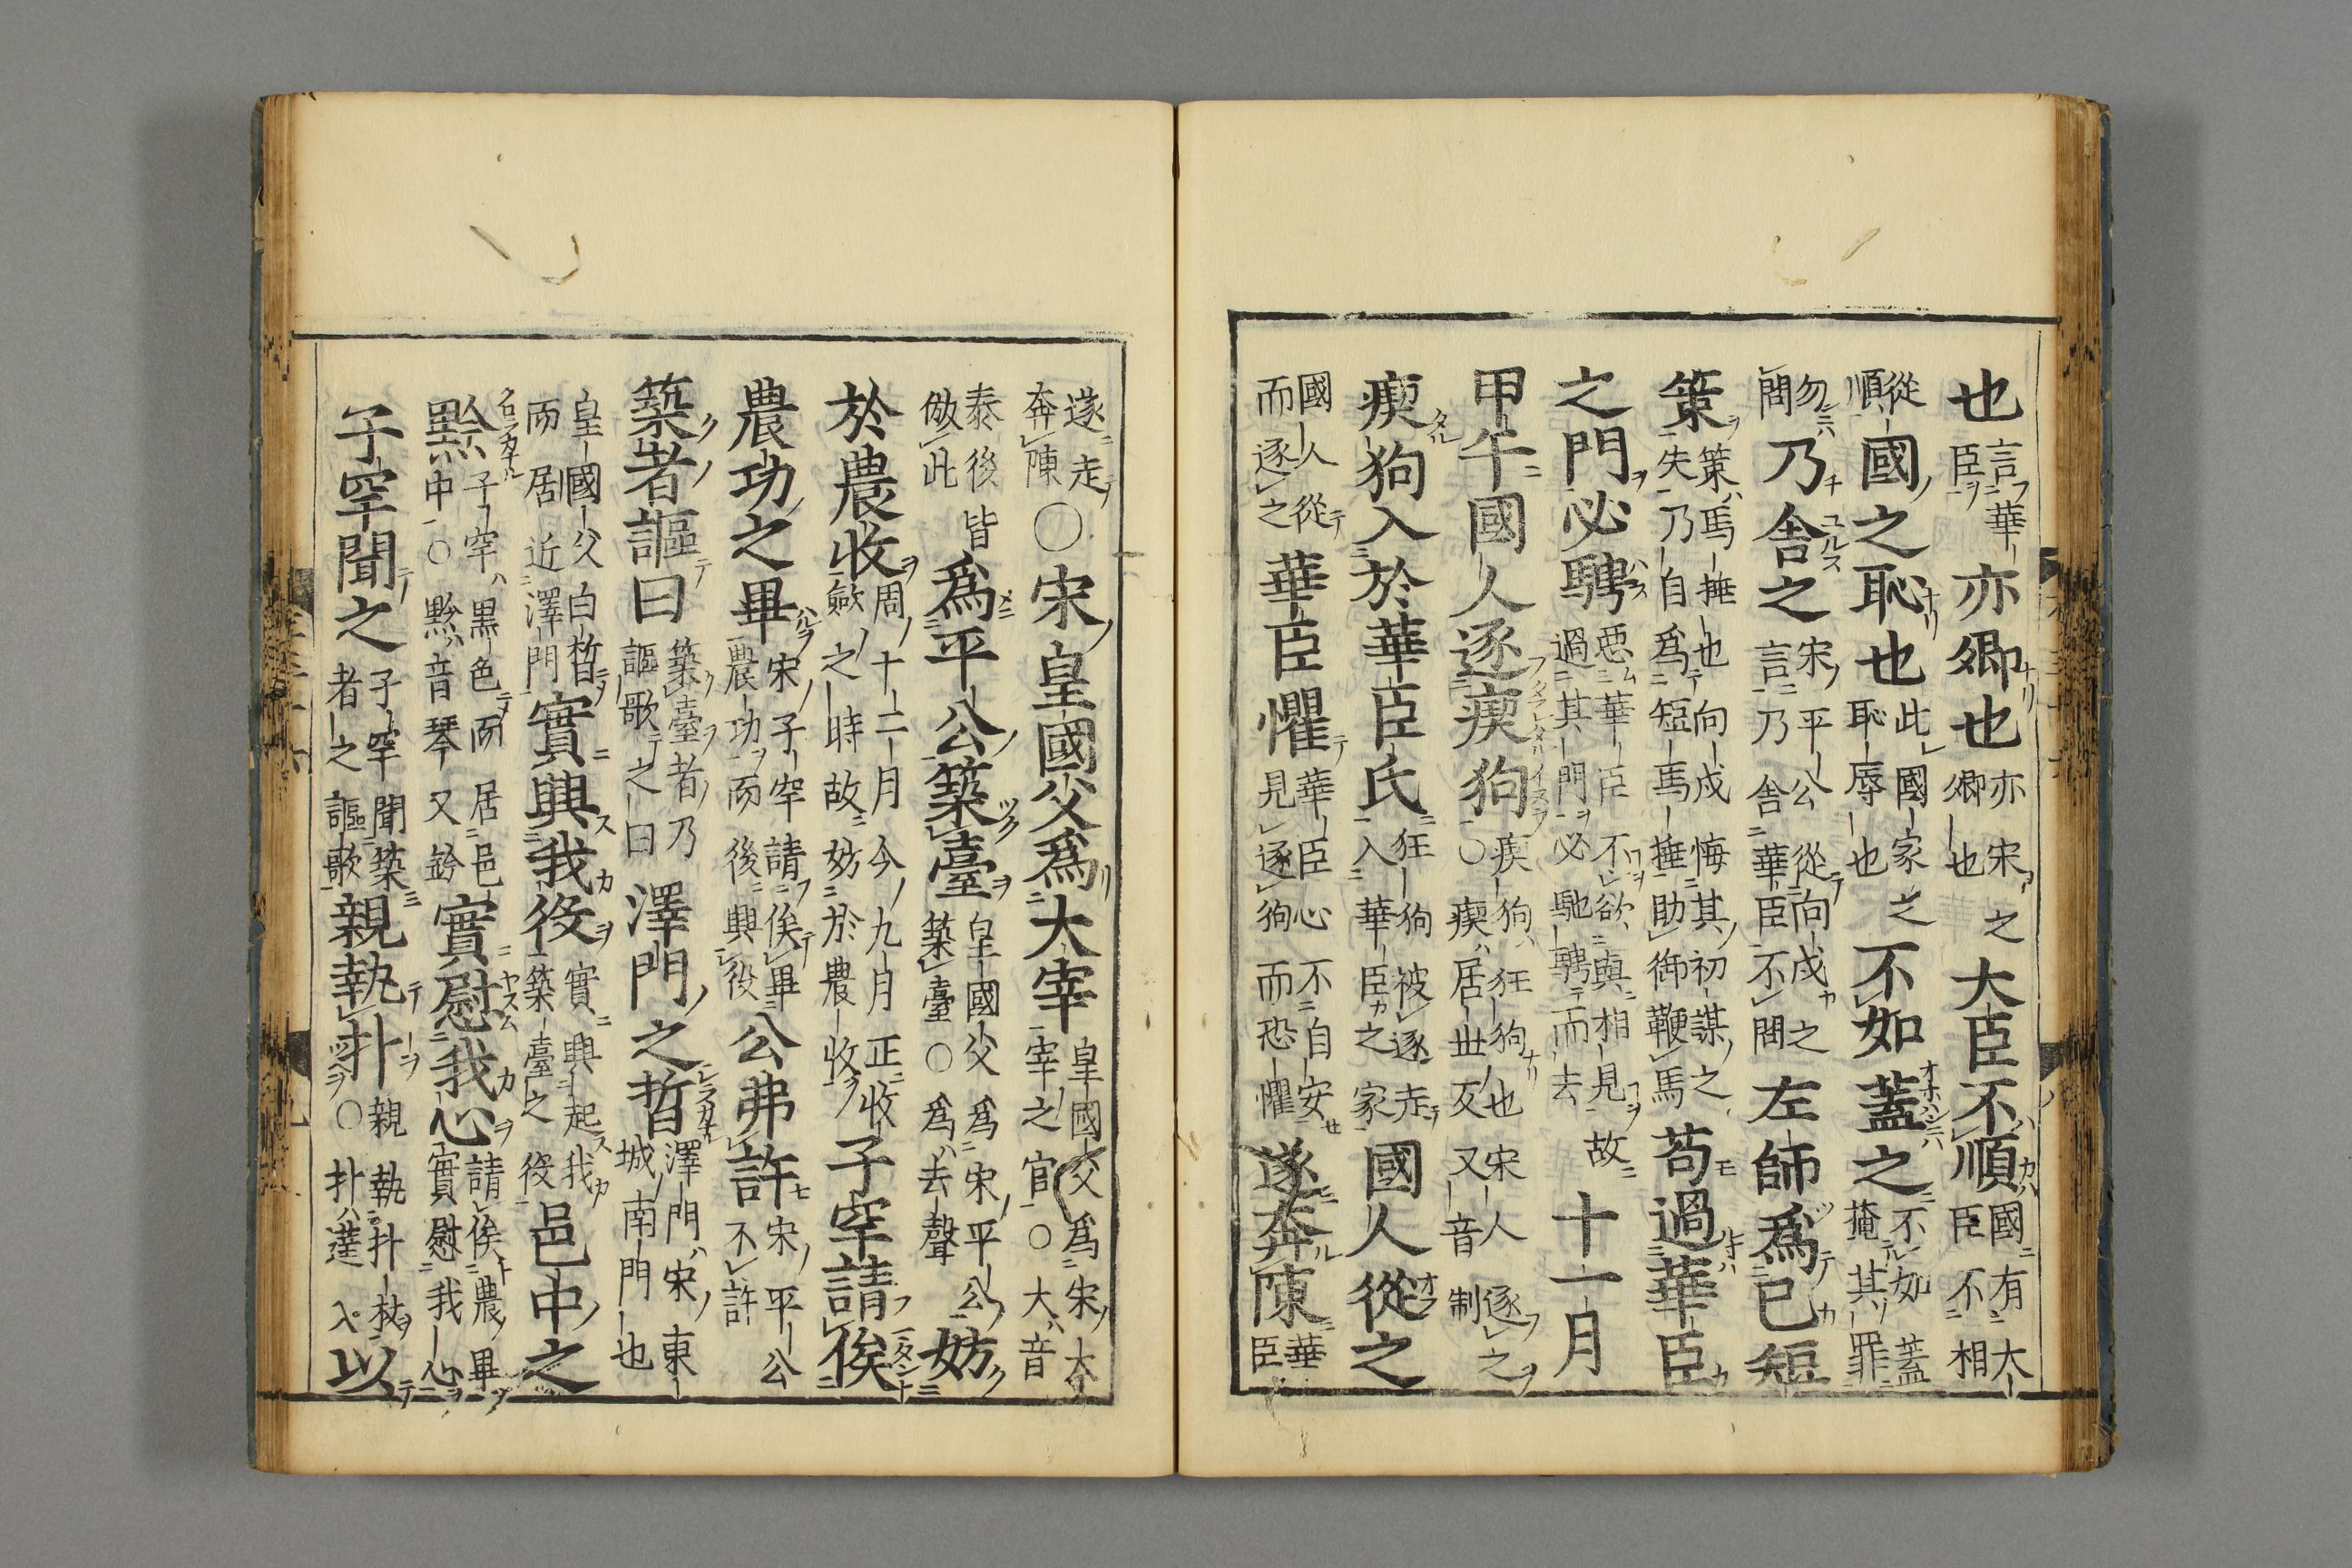 也言華臣亦卿也亦宋之卿也大臣不順國有大臣不相
從順國之恥也此國家之恥辱也不如蓋之不如蓋掩其罪
勿問乃舍之宋平公從向戌之言乃舍華臣不問左師爲已短
策策馬捶也向戌悔其初謀之失乃自爲短馬捶助御鞭馬苟過華臣
之門必騁惡華臣不欲與相見故過其門必馳騁而去十一月
甲午國人逐瘈狗疾狗狂狗也宋人逐之○瘈居世反又音制
瘈狗入於華臣氏狂狗被逐走入華臣之家國人從之
國人從而逐之華臣懼華臣心不自安見逐狗而恐懼遂奔陳華臣
遂走奔陳○宋皇國父爲大宰皇國父爲宋大宰之官○大音
泰後皆倣此爲平公築臺皇國父爲宋平公築臺○爲去聲妨
於農收周十二月今九月正收斂之時故妨於農收子罕請俟
農功之畢宋子罕請俟畢農功而後興役公弗許宋平公不許
築者謳曰築臺者乃謳歌之曰澤門之晳澤門宋東城南門也
皇國父白晳而居近澤門實興我役實興起我築臺之役邑中之
黔子罕黑色而居邑中○黔音琴又鈐實慰我心請俟農畢實慰我心
子罕聞之子罕聞築者之謳歌親執扑親執扑杖○扑達入以